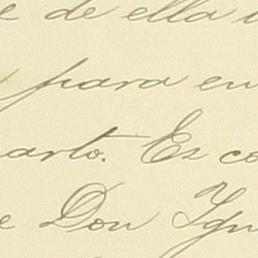 e de ella
para en
arto. Es co
e Don Ign